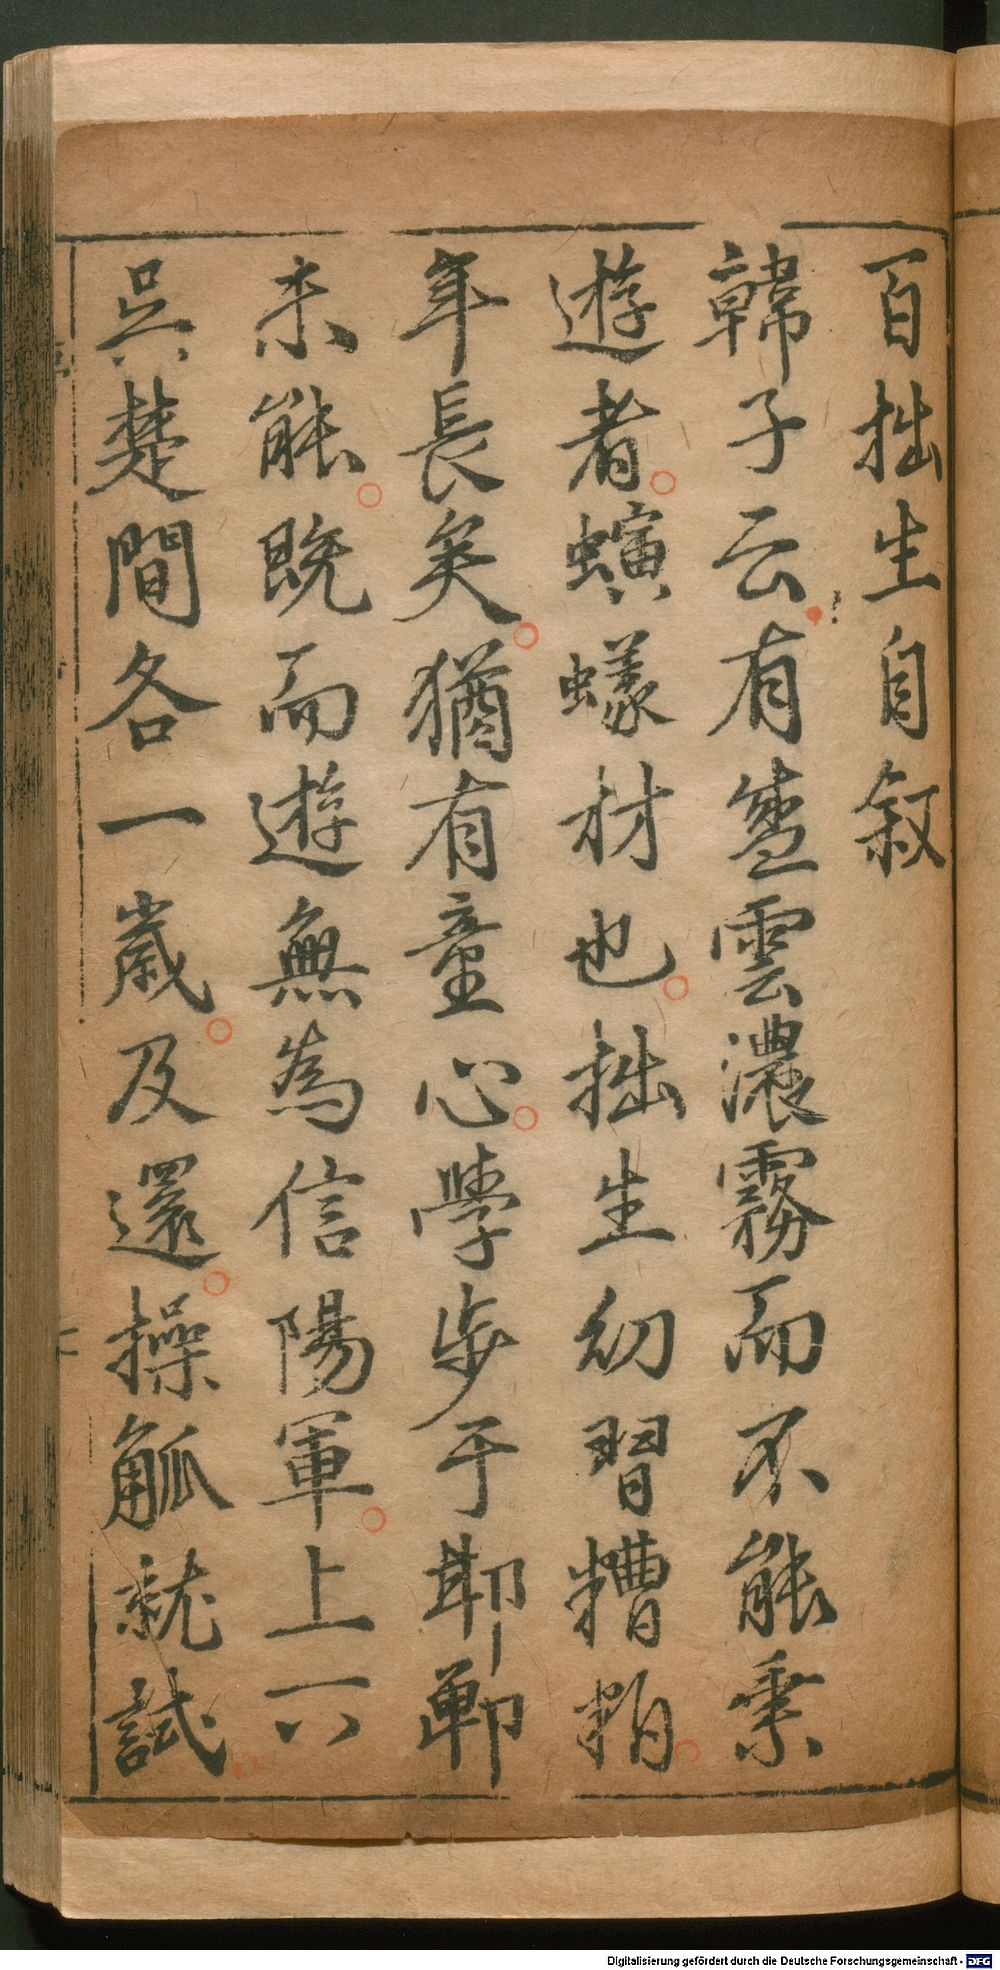 百拙生自敘
韓子云有盛雲濃霧而不能乘
遊者螾螘材也拙生幼習糟粕
年長矣猶有童心學步于邯鄲
未能既而遊無為信陽軍上六
吳楚間各一歲及還操觚就試
Digitalisierung gefördert durch die Deutsche Forschungsgemeinschaft - DFG